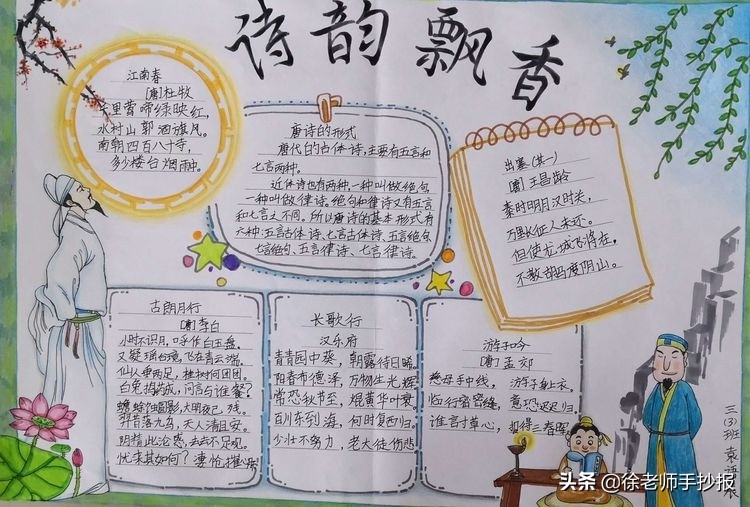 诗韵飘香
江南春
[唐]杜牧
千里莺啼绿映红,
水村山郭酒旗风。
南朝四百八十寺,
多少楼台烟雨中。
唐诗的形式
唐代的古体诗,主要有五言和
七言两种。
近体诗也有两种,一种叫做绝句,
一种叫做律诗。绝句和律诗又有五言
和七言之不同。所以唐诗的基本形式有
六种:五言古体诗、七言古体诗、五言绝句、
七言绝句、五言律诗、七言律诗。
出塞(其一)
[唐]王昌龄
秦时明月汉时关,
万里长征人未还。
但使龙城飞将在,
不教胡马度阴山。
古朗月行
[唐]李白
小时不识月,呼作白玉盘。
又疑瑶台镜,飞在青云端。
仙人垂两足,桂树何团团。
白兔捣药成,问言与谁餐?
蟾蜍蚀圆影,大明夜已残。
羿昔落九乌,天人清且安。
阴精此沦惑,去去不足观。
忧来其如何?凄怆摧心
长歌行
汉乐府
青青园中葵,朝露待日晞。
阳春布德泽,万物生光辉
常恐秋节至,焜黄华叶衰。
百川东到海,何时复西归。
少壮不努力,老大徒伤悲
游子吟
[唐]孟郊
慈母手中线,游子身上衣,
临行密密缝,意恐迟迟归。
谁言寸草心,报得三春晖
三(3)班
头条 @徐老师手抄报